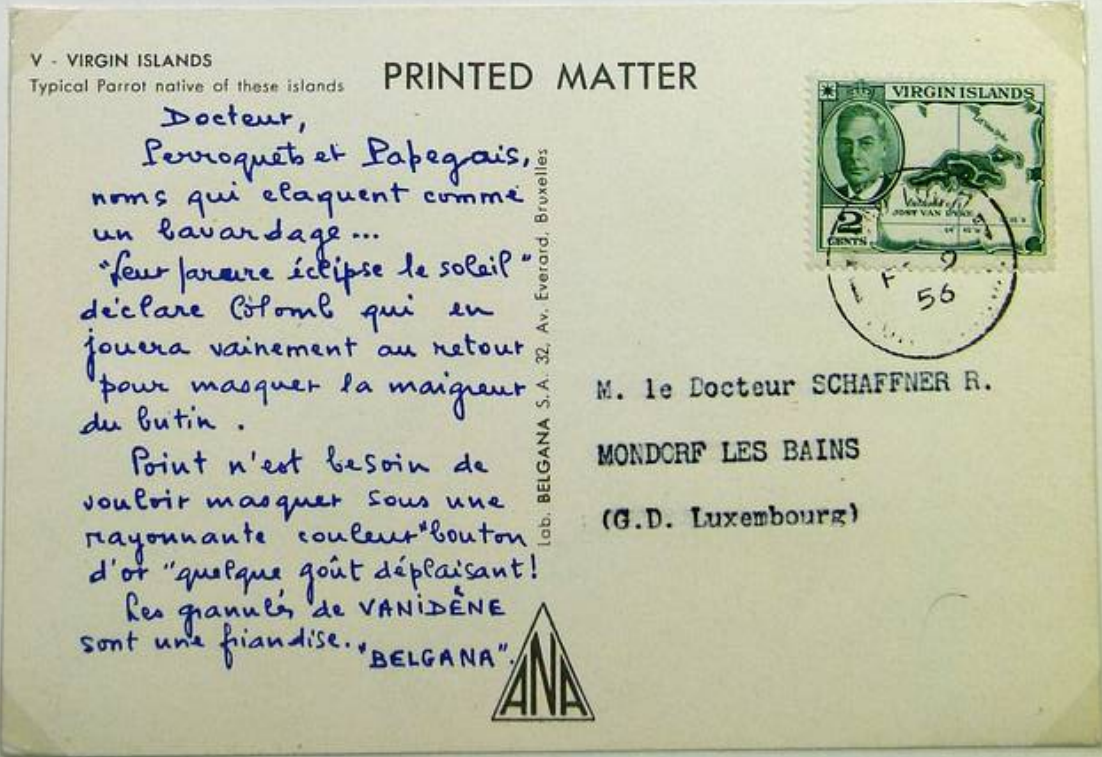 V - VIRGIN ISLANDS
Typical Parrot native of these islands
PRINTED MATTER
Docteur,
Perroquets et Papegais,
noms qui claquent comme
un bavardage...
"Leur parure éclipse le soleil"
déclare Colomb qui en
jouera vainement au retour
pour masquer la maigreur
du butin.
Point n'est besoin de
vouloir masquer sous une
rayonnante couleur "bouton
d'or" quelque goût déplaisant!
Les granulés de VANIDÈNE
sont une friandise.
"BELGANA".
Lab. BELGANA S.A. 32, Av. Everard, Bruxelles
ANA
VIRGIN ISLANDS
JOST VAN DYKE
2
CENTS
9
56
M. le Docteur SCHAFFNER R.
MONDORF LES BAINS
(G.D. Luxembourg)